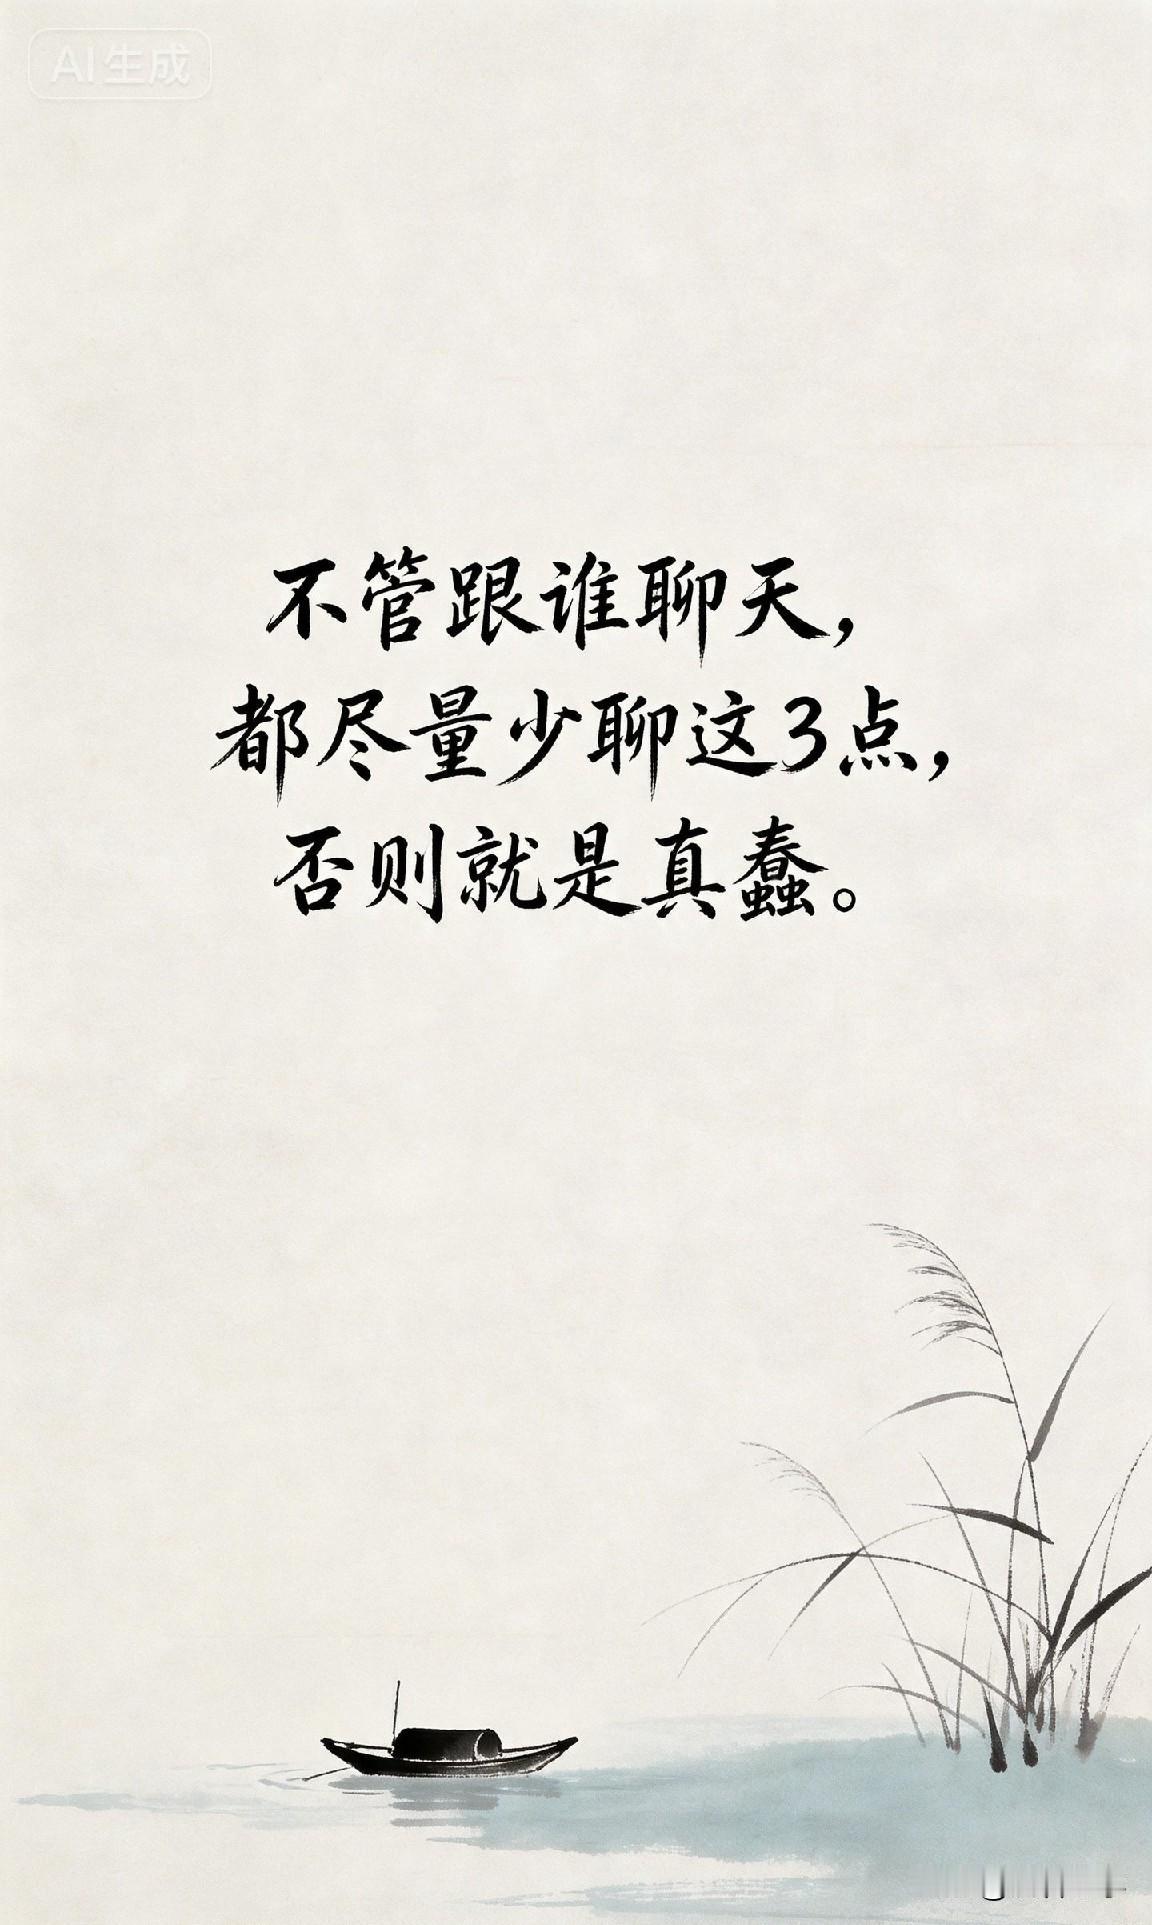 AI生成
不管跟谁聊天，
都尽量少聊这3点，
否则就是真蠢。